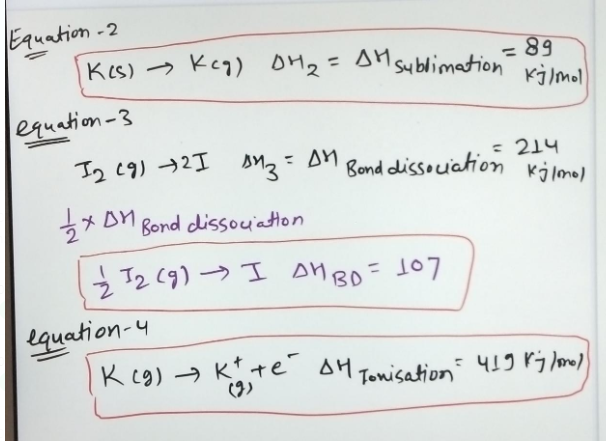 Equation-2
K(s) → K(g) ΔH₂ = ΔH Sublimation = 89 Kj/mol
equation-3
I₂ (g) → 2I ΔH₃ = ΔH Bond dissociation = 214 Kj/mol
1/2 × ΔH Bond dissociation
1/2 I₂ (g) → I ΔH BD = 107
equation-4
K (g) → K⁺(g) + e⁻ ΔH Ionisation = 419 Kj/mol